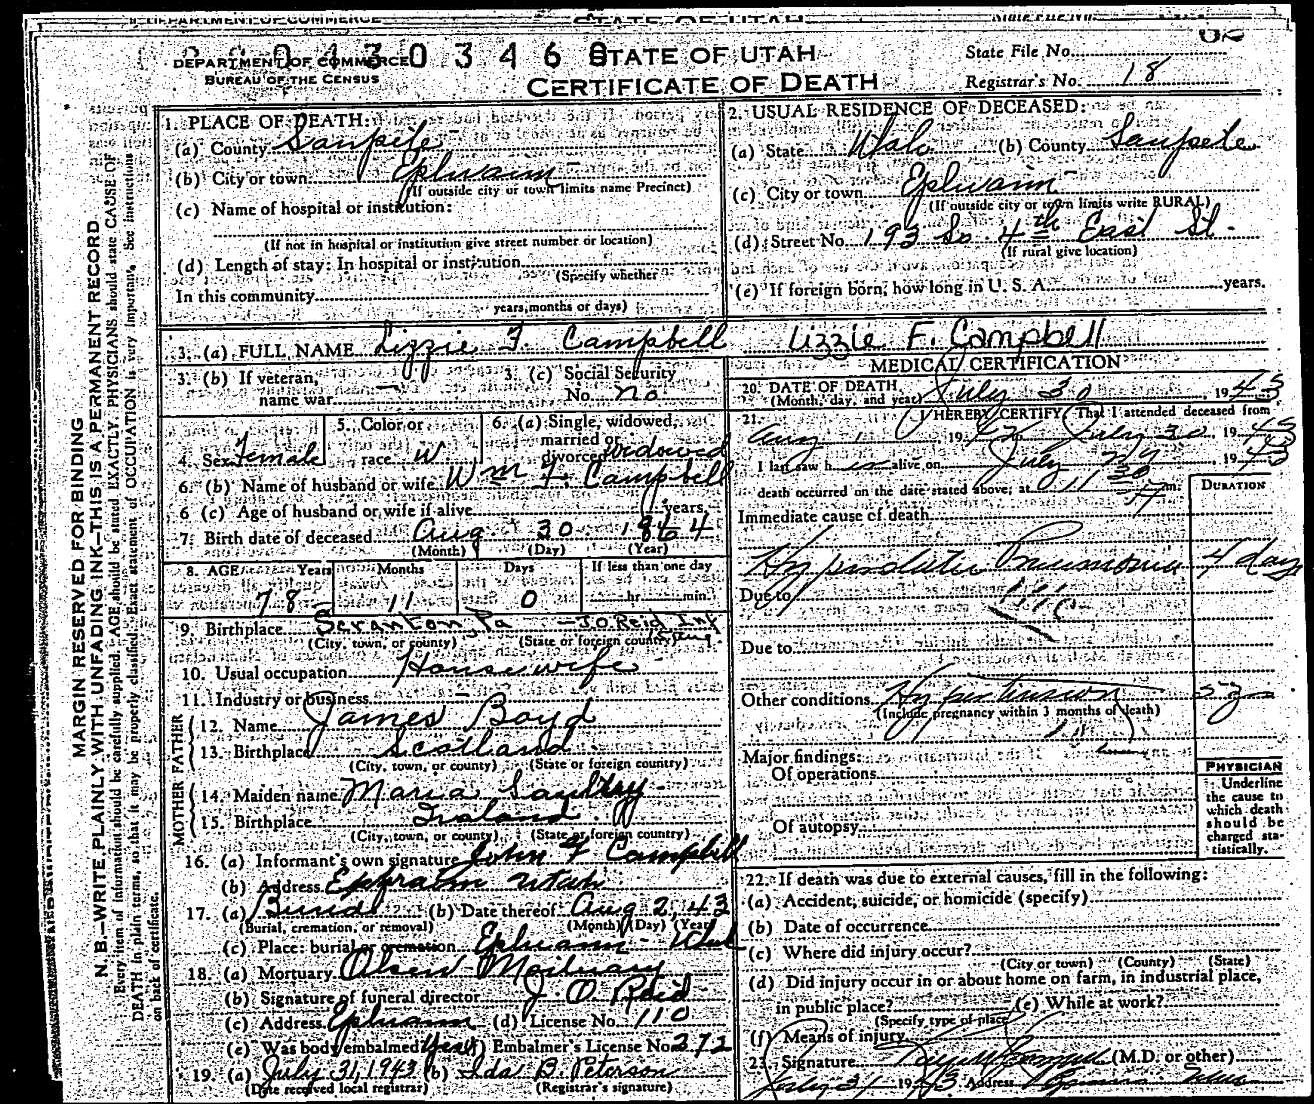 DEPARTMENT OF COMMERCE
BUREAU OF THE CENSUS
STATE OF UTAH
CERTIFICATE OF DEATH
State File No.
Registrar's No. 18
MARGIN RESERVED FOR BINDING
N. B.—WRITE PLAINLY, WITH UNFADING INK—THIS IS A PERMANENT RECORD
Every item of information should be carefully supplied. AGE should be stated EXACTLY. PHYSICIANS should state CAUSE OF
DEATH in plain terms, so that it may be properly classified. Exact statement of OCCUPATION is very important. See instructions
on back of certificate.
1. PLACE OF DEATH:
(a) County Sanpete
(b) City or town Ephraim
(If outside city or town limits name Precinct)
(c) Name of hospital or institution:
(If not in hospital or institution give street number or location)
(d) Length of stay: In hospital or institution
(Specify whether
In this community
years, months or days)
2. USUAL RESIDENCE OF DECEASED:
(a) State Utah (b) County Sanpete
(c) City or town Ephraim
(If outside city or town limits write RURAL)
(d) Street No. 193 So. 4th East St.
(If rural give location)
(e) If foreign born, how long in U. S. A. years.
3. (a) FULL NAME Lizzie F. Campbell Lizzie F. Campbell
3. (b) If veteran, name war —
3. (c) Social Security No. no
4. Sex Female
5. Color or race W
6. (a) Single, widowed, married or divorced widowed
6. (b) Name of husband or wife Wm F. Campbell
6 (c) Age of husband or wife if alive years.
7. Birth date of deceased Aug 30 1864
(Month) (Day) (Year)
8. AGE Years Months Days If less than one day
78 11 0 hr. min.
9. Birthplace Scranton, Pa — J.O. Reid Inf
(City, town, or county) (State or foreign country)
10. Usual occupation Housewife
11. Industry or business —
FATHER
12. Name James Boyd
13. Birthplace Scotland
(City, town, or county) (State or foreign country)
MOTHER
14. Maiden name Maria
15. Birthplace Ireland
(City, town, or county) (State or foreign country)
16. (a) Informant's own signature John F Campbell
(b) Address Ephraim Utah
17. (a) Burial (b) Date thereof Aug 2, 43
(Burial, cremation, or removal) (Month) (Day) (Year)
(c) Place: burial or cremation Ephraim - Utah
18. (a) Mortuary Olsen Mortuary
(b) Signature of funeral director J. O. Reid
(c) Address Ephraim (d) License No. 110
(e) Was body embalmed yes (f) Embalmer's License No. 372
19. (a) July 31, 1943 (b) Ida B. Peterson
(Date received local registrar) (Registrar's signature)
MEDICAL CERTIFICATION
20. DATE OF DEATH July 30, 1943
(Month, day, and year)
21. I HEREBY CERTIFY, That I attended deceased from
Aug 1 1942, July 30, 1943
I last saw h alive on July 1943
death occurred on the date stated above, at 11 30 m.
DURATION
Immediate cause of death
Hypostatic Pneumonia 4 days
Due to
Due to
Other conditions Hypertension
(Include pregnancy within 3 months of death)
Major findings:
Of operations
Of autopsy
PHYSICIAN
Underline
the cause to
which death
should be
charged sta-
tistically.
22. If death was due to external causes, fill in the following:
(a) Accident, suicide, or homicide (specify)
(b) Date of occurrence
(c) Where did injury occur?
(City or town) (County) (State)
(d) Did injury occur in or about home on farm, in industrial place,
in public place? (e) While at work?
(Specify type of place)
(f) Means of injury
23. Signature (M.D. or other)
July 31 1943 Address